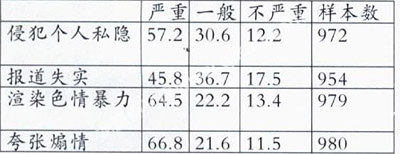 严重 一般 不严重 样本数
侵犯个人私隐 57.2 30.6 12.2 972
报道失实 45.8 36.7 17.5 954
渲染色情暴力 64.5 22.2 13.4 979
夸张煽情 66.8 21.6 11.5 980